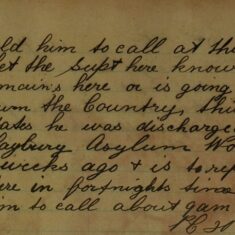 old him to call at the
let the Supt here know
mains here or is going
urn the Country, this
ates he was discharged
aybury Asylum Wo
weeks ago & is to rep
ere in fortnights time
im to call about 9 am